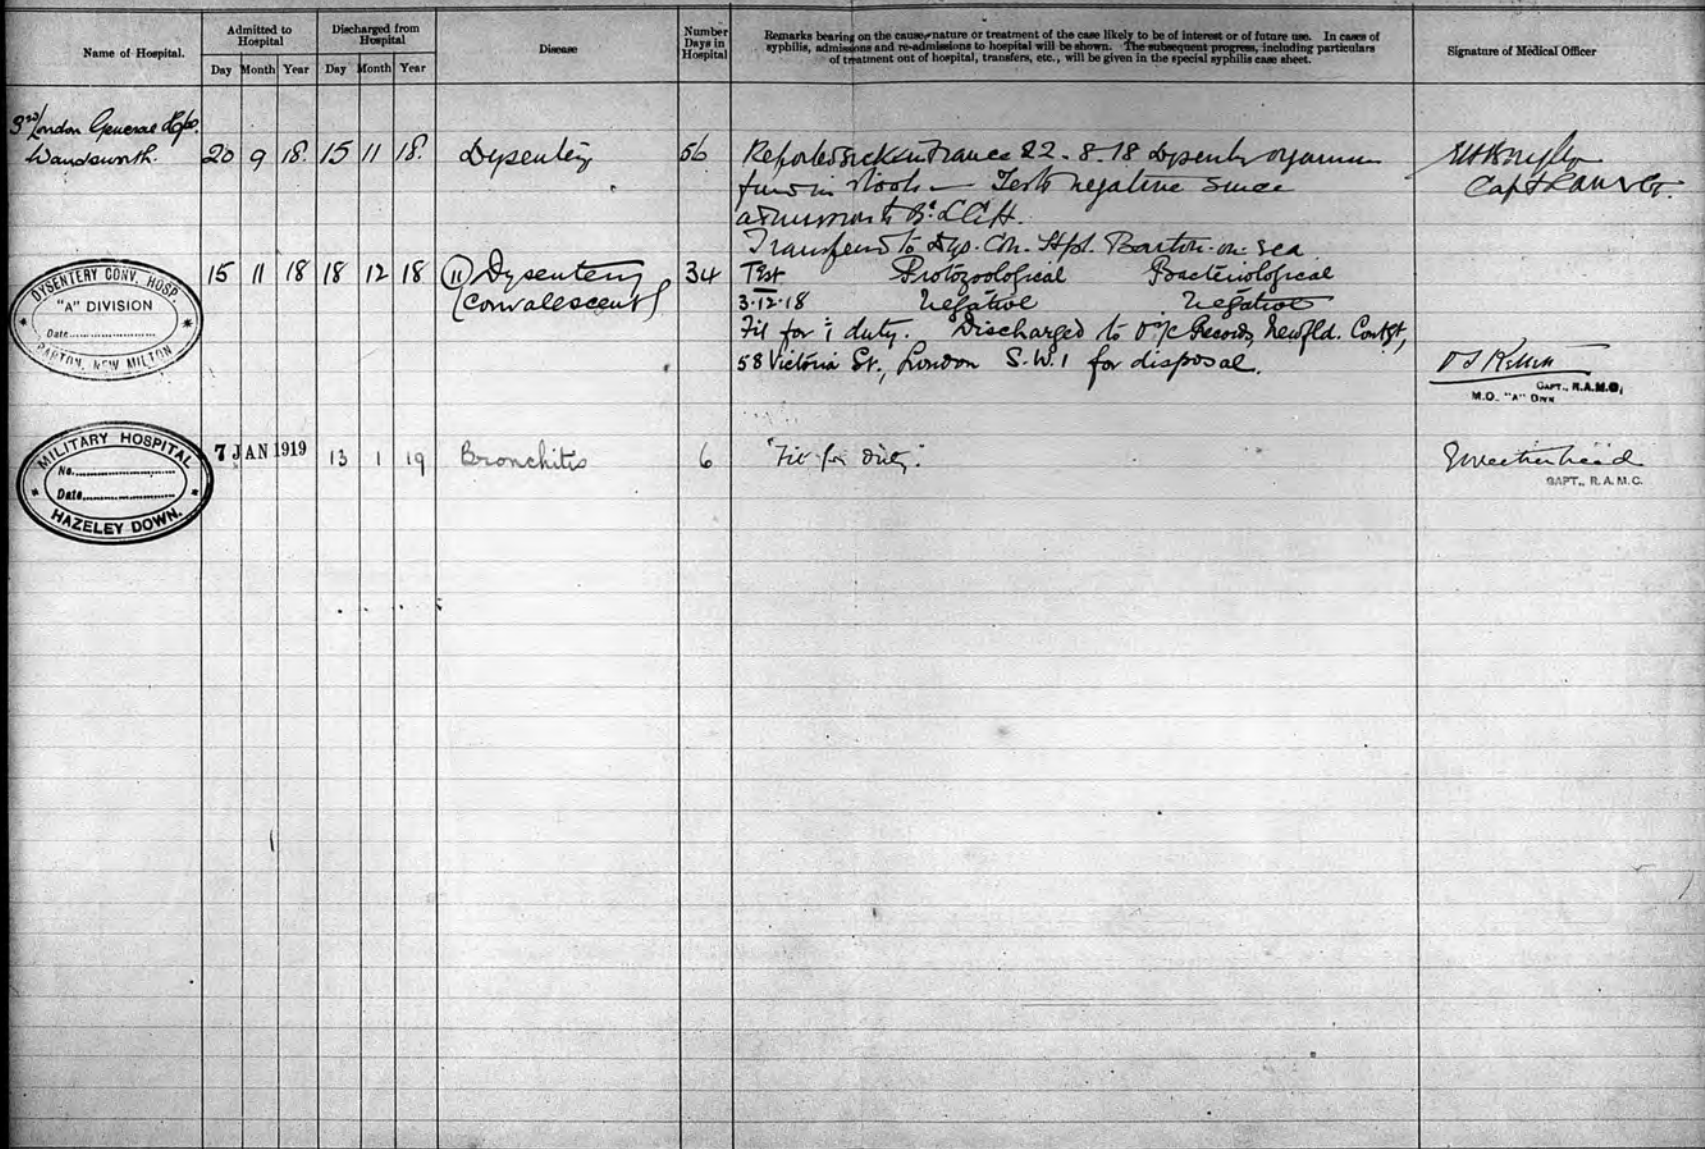 Name of Hospital.
Admitted to Hospital
Discharged from Hospital
Disease
Number Days in Hospital
Remarks bearing on the cause, nature or treatment of the case likely to be of interest or of future use. In cases of
syphilis, admissions and re-admissions to hospital will be shown. The subsequent progress, including particulars
of treatment out of hospital, transfers, etc., will be given in the special syphilis case sheet.
Signature of Medical Officer
Day Month Year Day Month Year
3rd London General
Wandsworth. 20 9 18. 15 11 18. Dysentery 56 Reported sick in France 22-8-18
in stools — Tests negative since
Capt
Transferred to Dys. Con. Hpl. Barton-on-Sea
DYSENTERY CONV. HOSP.
"A" DIVISION
Date
BARTON, NEW MILTON
15 11 18 18 12 18 (11) Dysentery 34 Test Protozoological Bacteriological
(Convalescent) 3-12-18 Negative Negative
Fit for i duty. Discharged to O i/c Records, Newfld. Contgt,
58 Victoria St., London S.W.1 for disposal.
CAPT., R.A.M.C.
M.O. "A" DIVN
MILITARY HOSPITAL
No.
Date
HAZELEY DOWN.
7 JAN 1919 13 1 19 Bronchitis 6 "Fit for Duty."
CAPT., R.A.M.C.